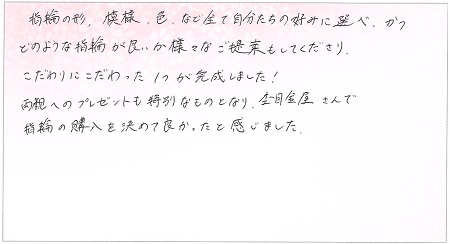 指輪の形、模様、色、など全て自分たちの好みに選べ、かつ
どのような指輪が良いか様々なご提案もしてくださり、
こだわりにこだわった1つが完成しました!
両親へのプレゼントも特別なものとなり、杢目金屋さんで
指輪の購入を決めて良かったと感じました。